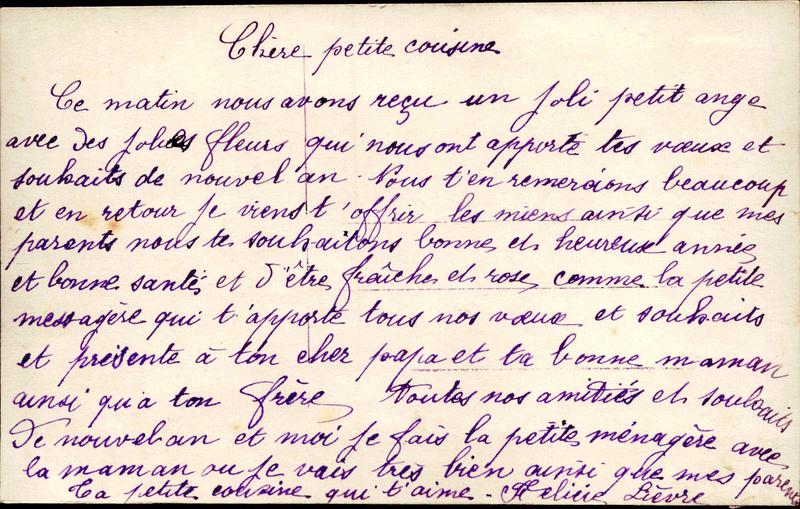 Chère petite cousine
Ce matin nous avons reçu un joli petit ange
avec des jolies fleurs qui nous ont apporté tes vœux et
souhaits de nouvel an. Nous t'en remercions beaucoup
et en retour je viens t'offrir les miens ainsi que mes
parents nous te souhaitons bonne et heureuse année
et bonne santé et d'être fraîche et rose comme la petite
messagère qui t'apporte tous nos vœux et souhaits
et présente à ton cher papa et ta bonne maman
ainsi qu'a ton frère toutes nos amitiés et souhaits
De nouvel an et moi je fais la petite ménagère avec
la maman ou je vais tres bien ainsi que mes parents
Ta petite cousine qui t'aime - Félicie Lièvre